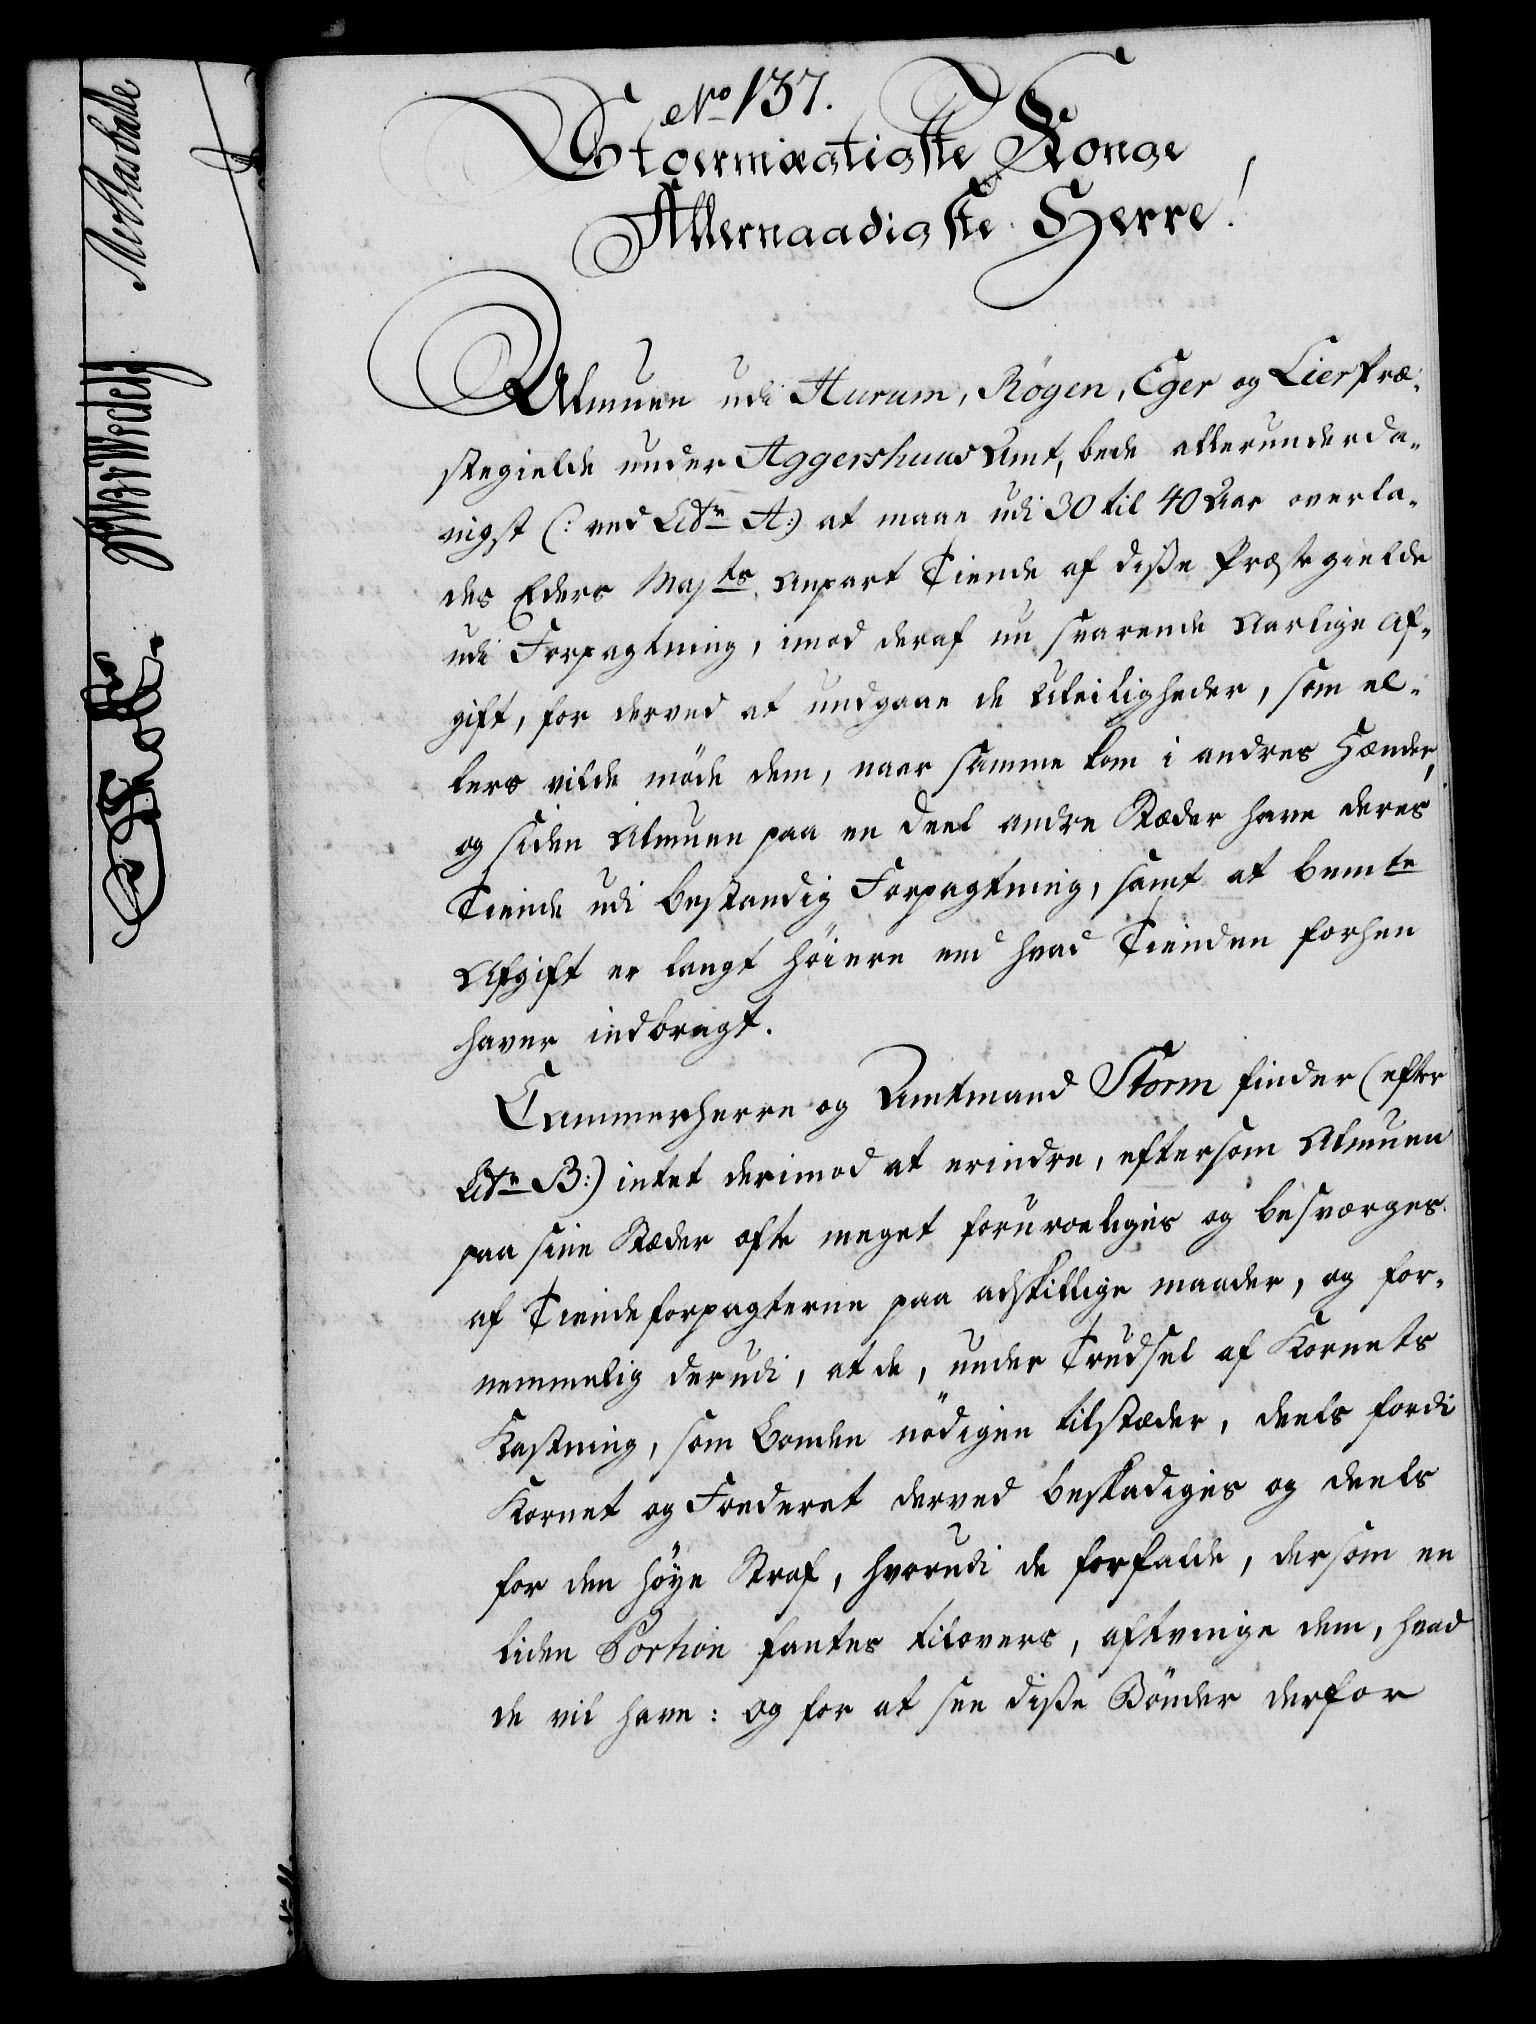 No 137.
Stoermægtigste Konge
Allernaadigste Herre!
Almuen udi Hurum, Røgen, Eger og Lier Præ-
stegielde under Aggershuus Amt, bede allerunderda-
nigst (: ved Litr. A:) at maae udi 30 til 40 Aar overla-
des Eders Majts Anpart Tiende af disse Præstegielde
udi Forpagtning, imod deraf nu svarende Aarlige Af-
gift, for derved at undgaae de Uleiligheder, som el-
lers vilde möde dem, naar samme kom i andres Hænder,
og siden Almuen paa en Deel andre Stæder have deres
Tiende udi bestandig Forpagtning, samt at bemte
Afgift er langt höiere end hvad Tienden forhen
haver indbragt.
Cammerherre og Amtmand Storm finder (efter
Litr. B:) intet derimod at erindre, eftersom Almuen
paa sine Stæder ofte meget foruroeliges og besværges
af Tiendeforpagterne paa adskillige maader, og for-
nemmelig derudi, at de, under Trudsel af Kornets
Kastning, som Bonden nödigen tilstæder, deels fordi
Kornet og Foederet derved beskadiges og deels
for den höye Straf, hvorudi de forfalde, dersom en
liden Portion fantes tilovers, aftvinge dem, hvad
de vil have: og for at see disse Bönder derfor